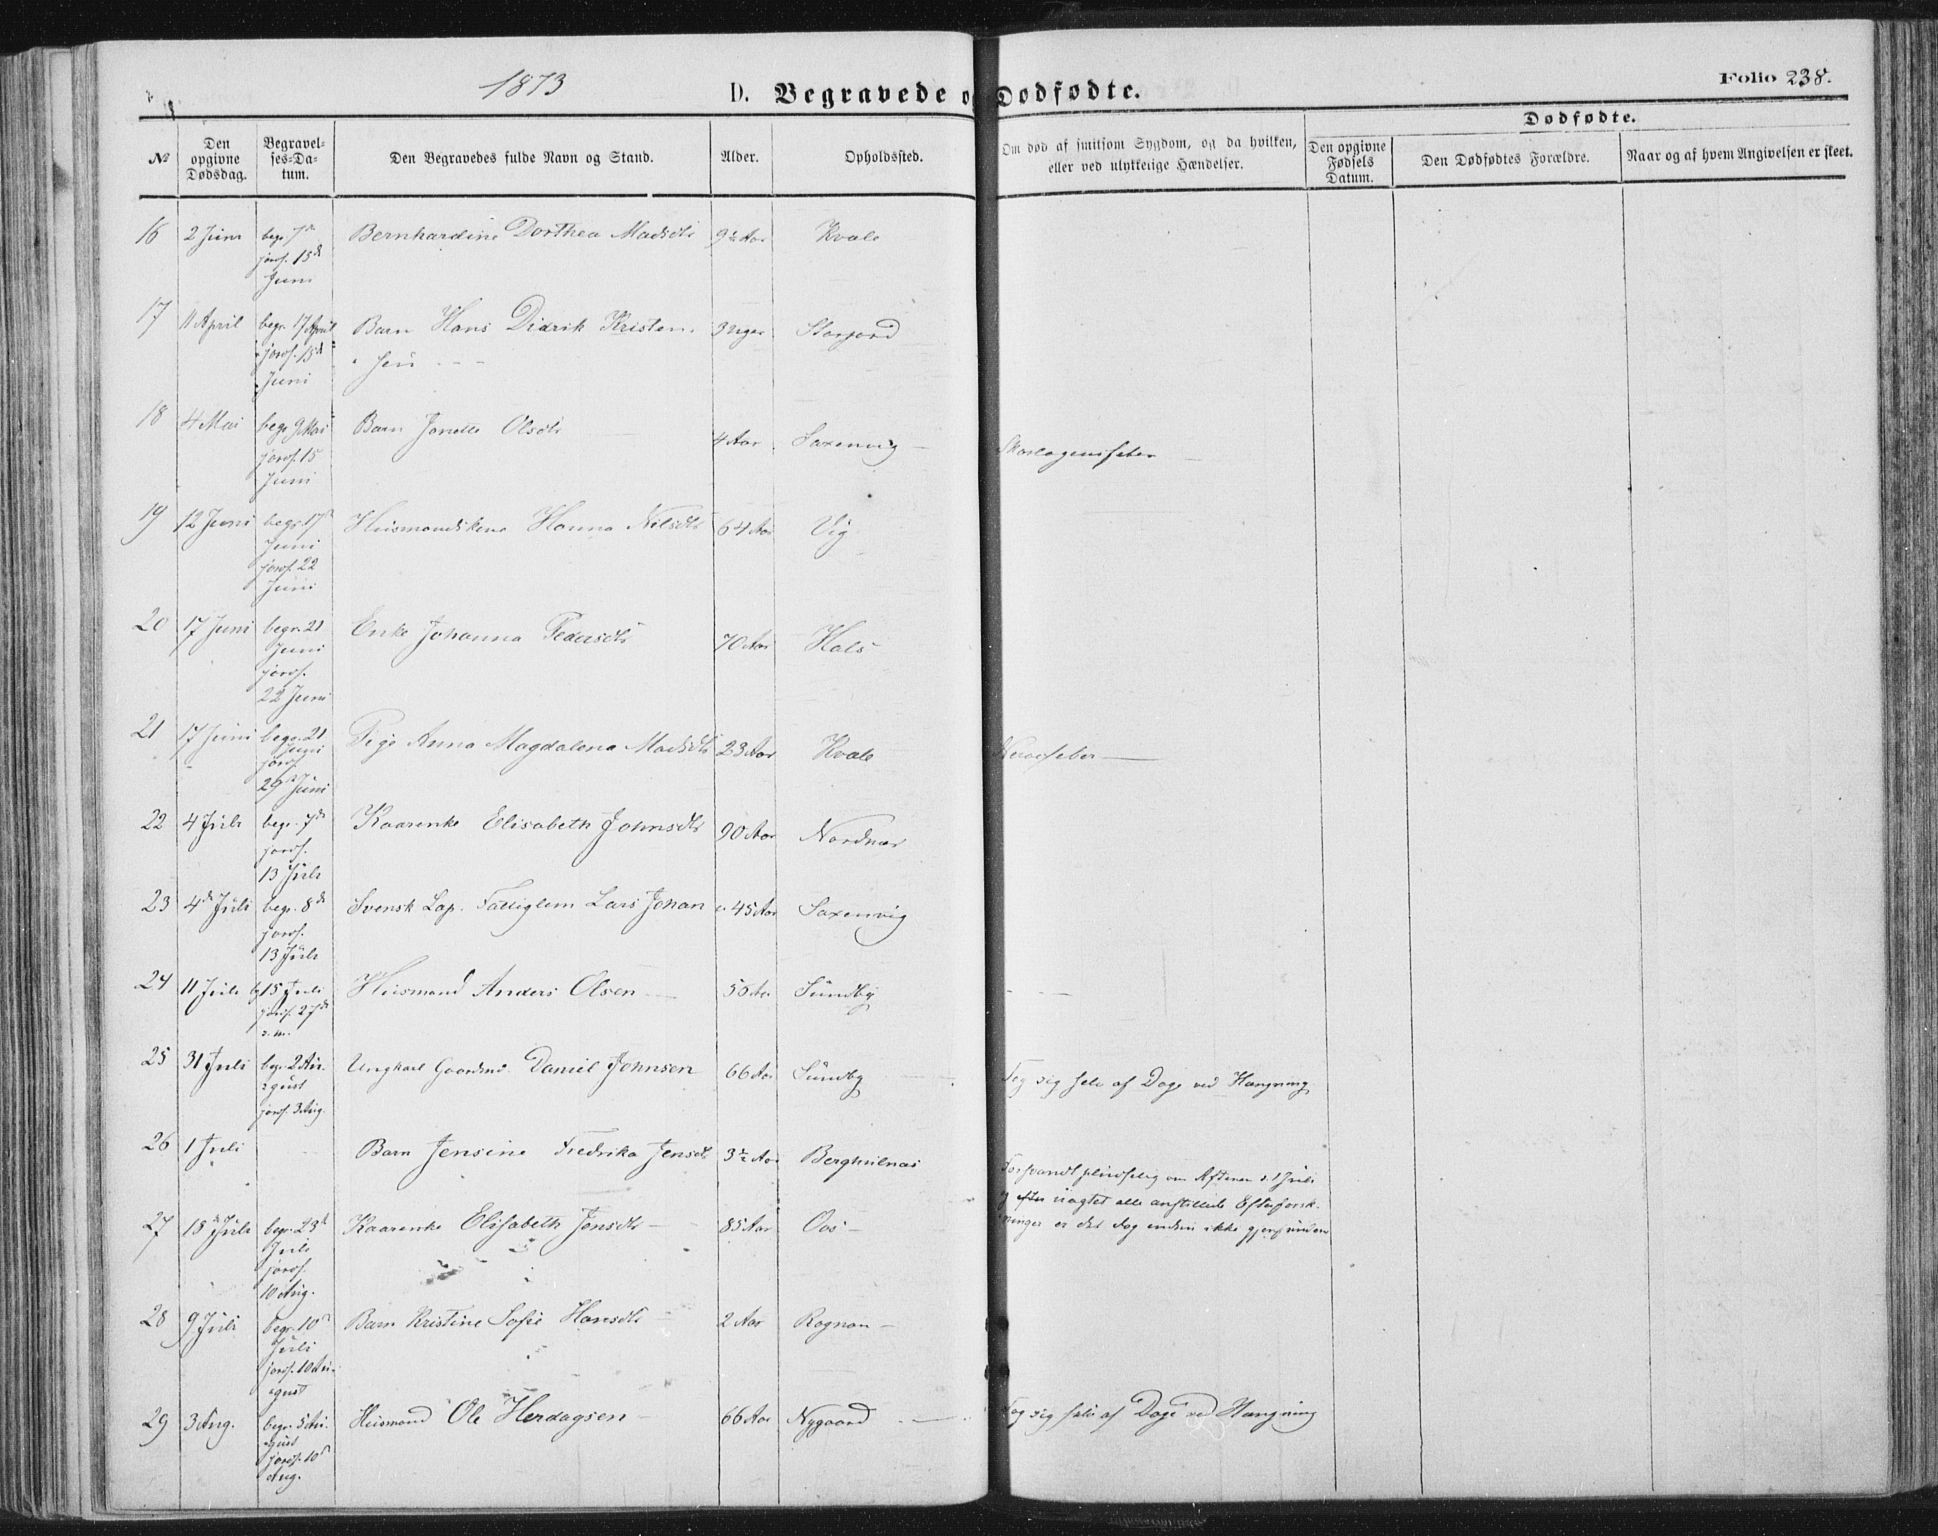 1873
D. Begravede o Dødfødte.
Folio 238.
Dødfødte.
№ Den opgivne Dødsdag. Begravel-ses-Da-tum. Den Begravedes fulde Navn og Stand. Alder. Opholdssted. Om død af smitsom Sygdom, og da hvilken, eller ved ulykkelige Hændelser. Den opgivne Fødsels Datum. Den Dødfødtes Forældre. Naar og af hvem Angivelsen er skeet.
16 2 Juni begr. 7d Bernhardine Dorthea Madsdtr 9½ Aar Kvale
jordf. 15d
Juni
17 11 April begr. 17 April Barn Hans Didrik Kristen- 3 Uger Storjord
jordf. 15d sen
Juni
18 4 Mai begr. 9 Mai Barn Olsdtr 4 Aar Saxenvig Skarlagensfeber
jordf. 15
Juni
19 12 Juni begr. 17d Huusmandskone Hanna Nilsdtr 64 Aar Vig
Juni
jordf. 22
Juni
20 17 Juni begr. 21 Enke Johanna Pedersdtr 70 Aar Hals
Juni
jordf.
22 Juni
21 17 Juni begr. 21 Pige Anna Magdalena Madsdtr 23 Aar Kvale Nervefeber
Juni
jordf.
29 Juni
22 4 Juli begr. 7de Kaarenke Elisabeth Johnsdtr 90 Aar Nordnæs
jordf.
13 Juli
23 4de Juli begr. 8de Svensk Lap. Fattiglem Lars Johan c. 45 Aar Saxenvig
jordf.
13 Juli
24 11 Juli b. 15 Juli Huusmand Anders Olsen 56 Aar Sundby
jordf. 27de
s. m.
25 31 Juli begr. 2 Au- Ungkarl Gaardmd. Daniel Johnsen 66 Aar Sundby Tog sig selv af Dage ved Hængning
gust
jordf. 3 Aug.
26 1 Juli Barn Jensine Fredrika Jensdtr 3½ Aar Berghulnæs Forsvandt pludselig om Aftenen d. 1 Juli
og efter uagtet alle anstillede Efterforsk-
ninger er det dog endnu ikke gjenfunden
27 18 Juli begr. 23d Kaarenke Elisabeth Jensdtr 85 Aar Oos
Juli
jordf.
10 Aug.
28 9 Juli begr. 10d Barn Kristine Sofie Hansdtr 2 Aar Rognan
Juli
jordf. 10 Au-
gust
29 3 Aug. begr. 5 Au- Huusmand Ole Herdagsen 66 Aar Nygaard Tog sig selv af Dage ved Hængning
gust
jordf. 10d
Aug.